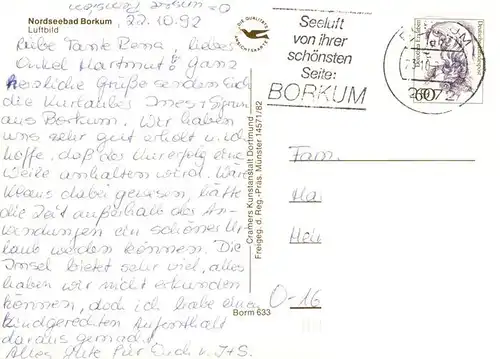 Nordseebad Borkum
Luftbild
22.10.92
DIE QUALITÄTS
ANSICHTSKARTE
Liebe Tante Rena, liebes
Onkel Hartmut! Ganz
herzliche Grüße senden Euch
die Kurlauber Ines +
aus Borkum. Wir haben
uns sehr gut erholt u. ich
hoffe, daß der Kurerfolg eine
Weile anhalten wird. Wäre
Klaus dabei gewesen, hätte
die Zeit außerhalb der An-
wendungen ein schöner Ur-
laub werden können. Die
Insel bietet sehr viel, alles
haben wir nicht erkunden
können, doch ich habe einen
kindgerechten Aufenthalt
daraus gemacht.
Alles Gute für Euch v. I+S.
Cramers Kunstanstalt Dortmund
Freigeg. d. Reg.-Präs. Münster 14571/82
Borm 633
Seeluft
von ihrer
schönsten
Seite:
BORKUM
2972
60
Fam.
Ha
Hei
O-16